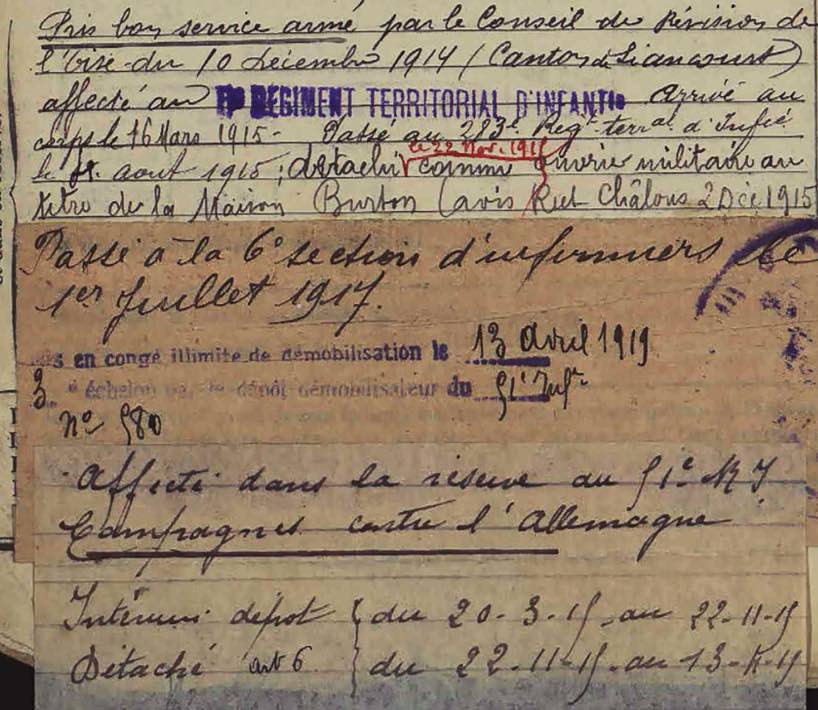 Pris bon service armé par le Conseil de Révision de
l'Oise du 10 Décembre 1914 (Canton de Liancourt)
affecté au REGIMENT TERRITORIAL D'INFANTIE Arrivé au
corps le 16 Mars 1915 - Passé au 283e Regt terral d'Infie
le août 1915; détaché comme ouvrie militaire au
le 22 Nov. 1915
titre de la Maison Burton (avis Rect Châlons 2 Déc 1915
Passé à la 6e section d'infirmiers le
1er Juillet 1917.
s en congé illimité de démobilisation le 13 avril 1919
3 e échelon dépôt démobilisateur du 51e Infie
no 580
Affecté dans la réserve au 51e R I
Campagnes contre l'Allemagne
Intérieur dépot { du 20-3-15 au 22-11-15
Détaché art 6 { du 22-11-15 au